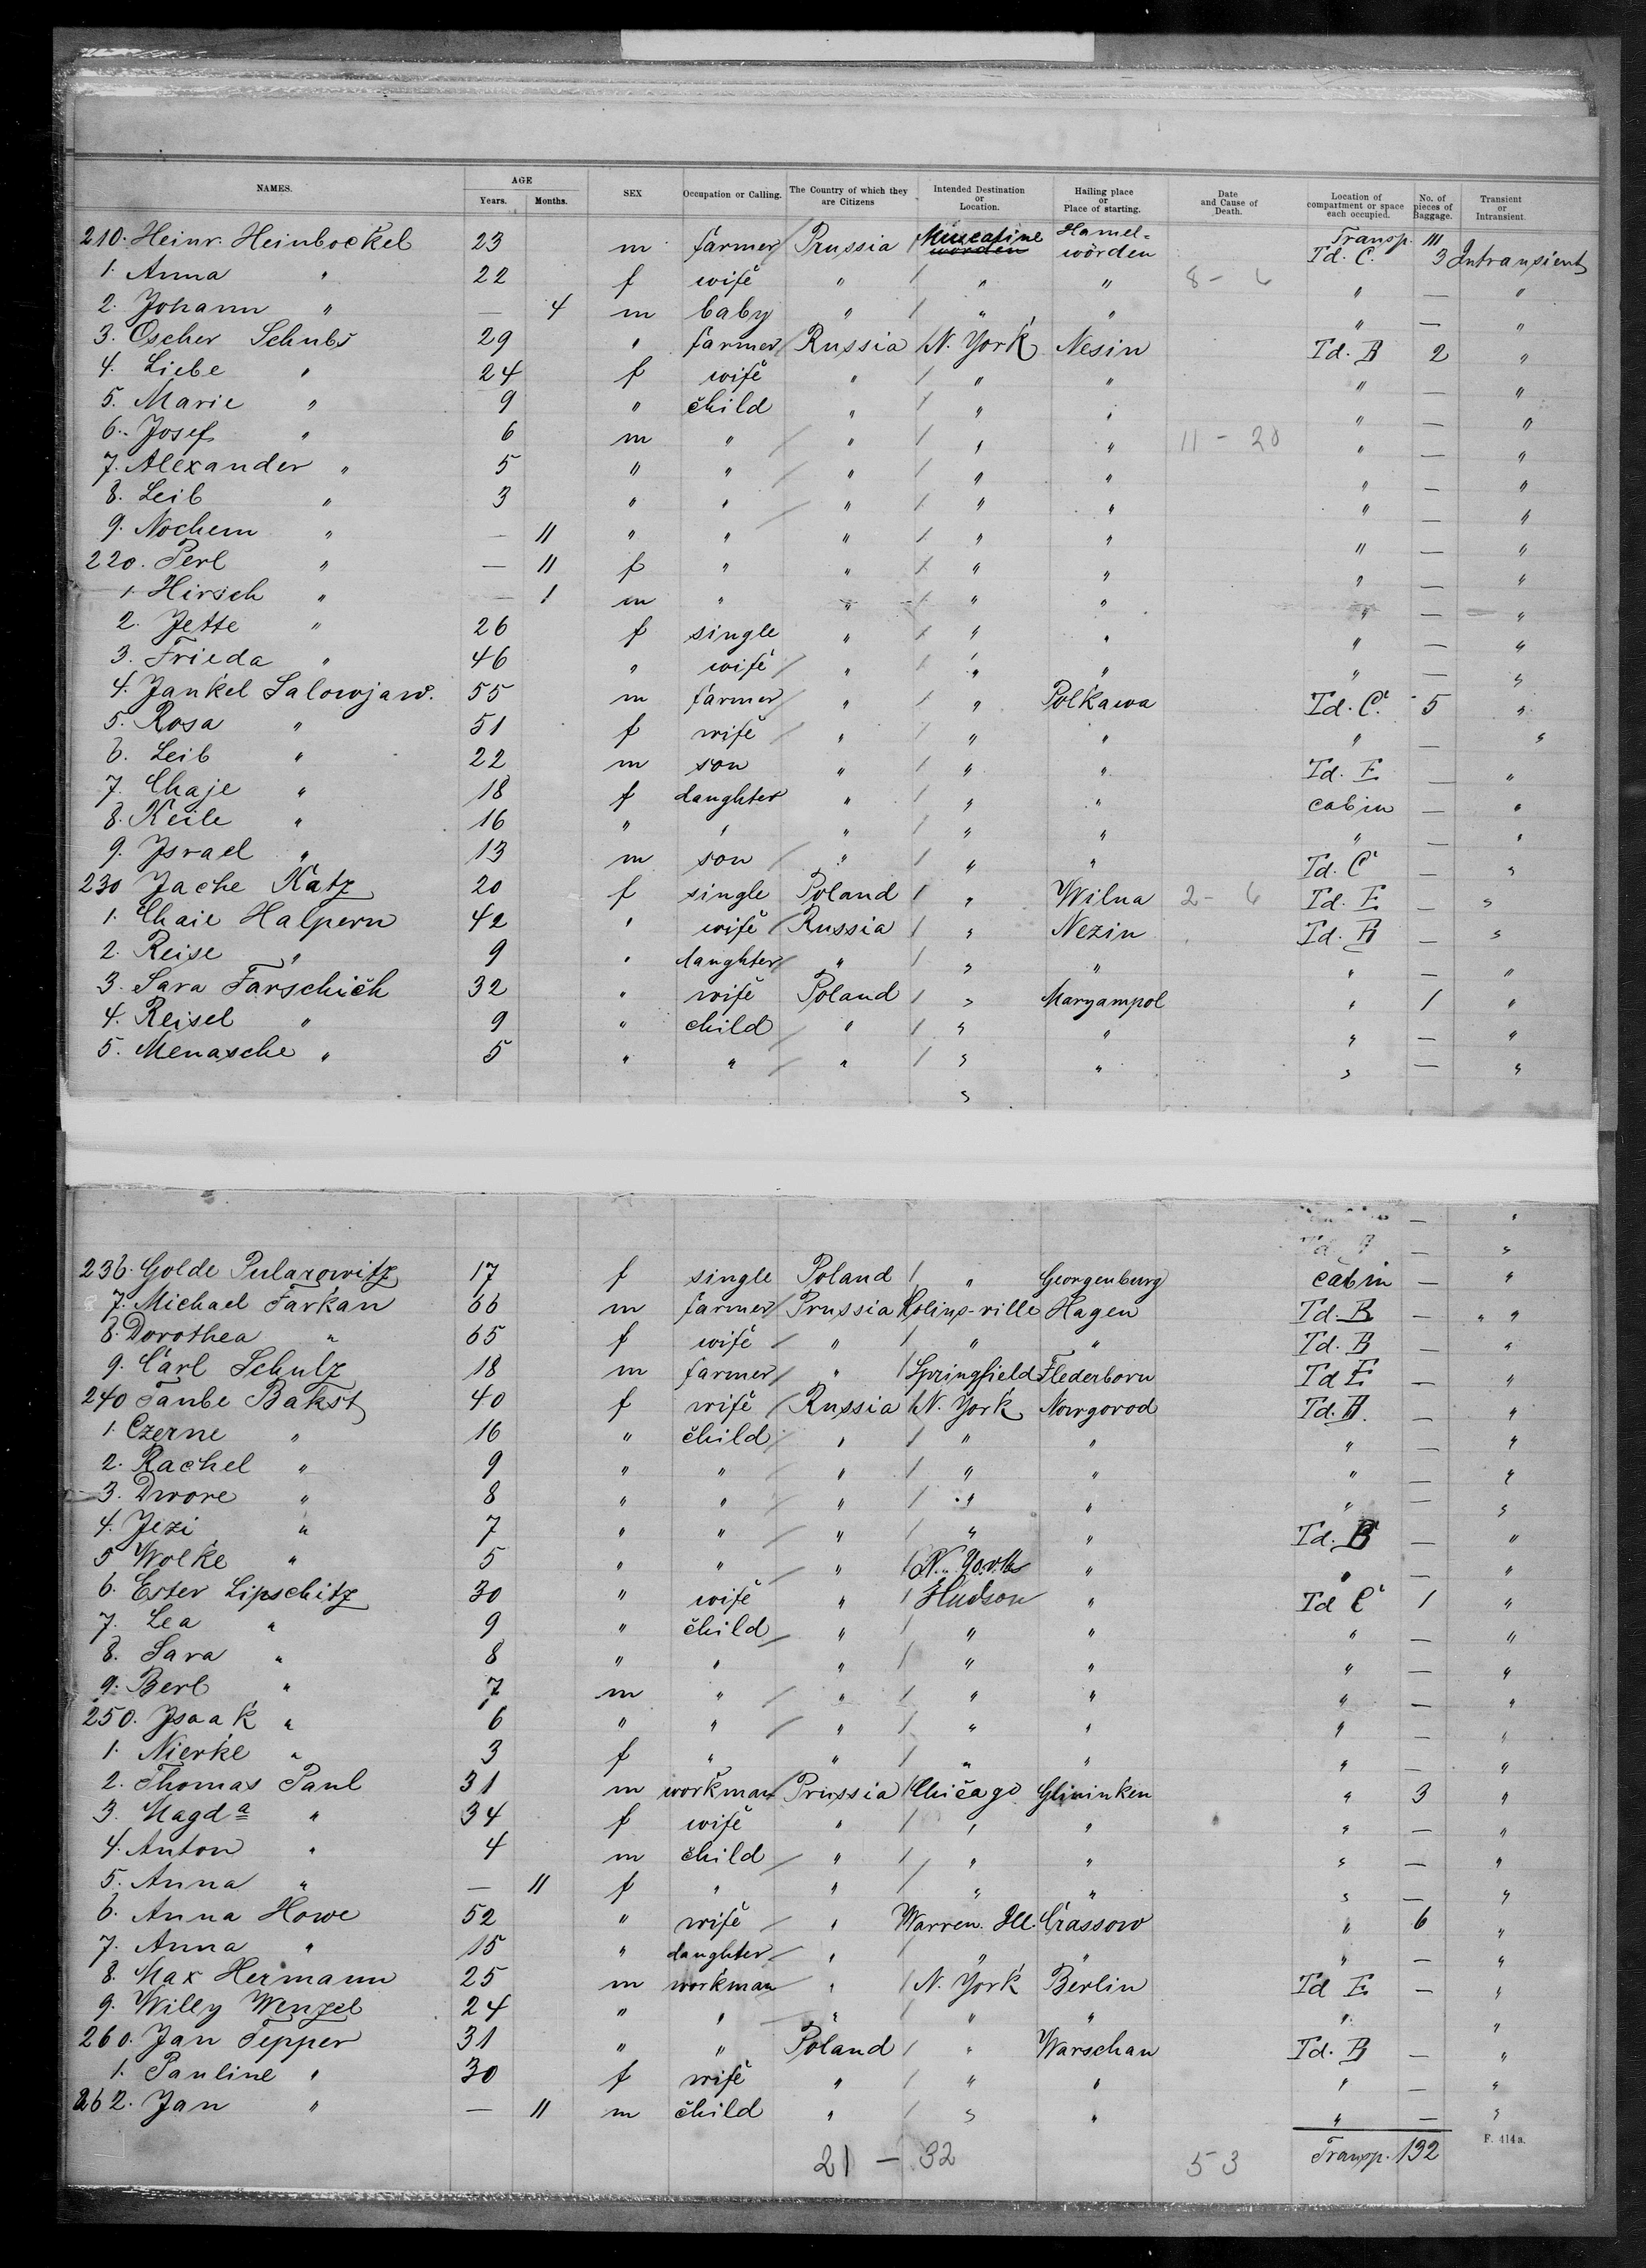 NAMES. AGE Years. Months. SEX Occupation or Calling. The Country of which they are Citizens Intended Destination or Location. Hailing place or Place of starting. Date and Cause of Death. Location of compartment or space each occupied. No. of pieces of Baggage. Transient or Intransient.
Transp. 111
210. Heinr. Heinbockel 23 m farmer Prussia Muscatine worden Hamel-wörden Td. C. 3 Intransient
1. Anna " 22 f wife " " " 8 - 6 " — "
2. Johann " — 4 m baby " " " " — "
3. Oscher Schubs 29 " farmer Russia N. York Nesin Td. B 2 "
4. Liebe " 24 f wife " " " " "
5. Marie " 9 " child " " " " — "
6. Josef " 6 m " " " " 11 - 20 " — "
7. Alexander " 5 " " " " " " — "
8. Leib " 3 " " " " " " — "
9. Nochem " — 11 " " " " " " — "
220. Perl " — 11 f " " " " " — "
1. Hirsch " — 1 m " " " " " — "
2. Jette " 26 f single " " " " — "
3. Frieda " 46 " wife " " " " — "
4. Jankel Salowjaw. 55 m farmer " " Polkawa Td. C. 5 "
5. Rosa " 51 f wife " " " " — "
6. Leib " 22 m son " " " Td. E — "
7. Chaje " 18 f daughter " " " cabin — "
8. Keile " 16 " " " " " " — "
9. Jsrael " 13 m son " " " Td. C — "
230 Jache Katz 20 f single Poland " Wilna 2 - 6 Td. E — "
1. Chaie Halpern 42 " wife Russia " Nezin Td. B — "
2. Reise " 9 " daughter " " " " — "
3. Sara Farschich 32 " wife Poland " Maryampol " 1 "
4. Reisel " 9 " child " " " " — "
5. Menasche " 5 " " " " " " — "
"
236. Golde Pularowitz 17 f single Poland " Georgenburg cabin — "
7. Michael Farkan 66 m farmer Prussia Kolins-ville Hagen Td. B — " "
8. Dorothea " 65 f wife " " " Td. B — "
9. Carl Schulz 18 m farmer " Springfield Flederborn Td E — "
240 Taube Bakst 40 f wife Russia N. York Nowgorod Td. B. — "
1. Czerne " 16 " child " " " " — "
2. Rachel " 9 " " " " " " — "
3. Dwore " 8 " " " " " " — "
4. Jezi " 7 " " " " " Td. B — "
5 Wolke " 5 " " " N. York " " — "
6. Ester Lipschitz 30 " wife " Hudson " Td C 1 "
7. Lea " 9 " child " " " " — "
8. Sara " 8 " " " " " " — "
9. Berl " 7 m " " " " " — "
250. Jsaak " 6 " " " " " " — "
1. Nierke " 3 f " " " " " — "
2. Thomas Paul 31 m workman Prussia Chicago Glininken " 3 "
3. Magda " 34 f wife " " " " — "
4. Anton " 4 m child " " " " — "
5. Anna " — 11 f " " " " " — "
6. Anna Howe 52 " wife " Warren. Ill. Crassow " 6 "
7. Anna " 15 " daughter " " " " — "
8. Max Hermann 25 m workman " N. York Berlin Td E — "
9. Willy Wenzel 24 " " " " " " "
260. Jan Tepper 31 " " Poland " Warschau Td. B — "
1. Pauline " 30 f wife " " " " — "
262. Jan " — 11 m child " " " " — "
F. 414 a.
21 - 32 53 Transp. 132